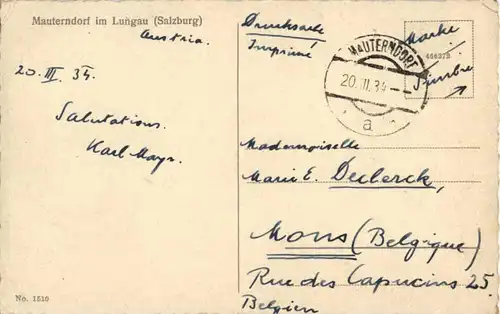 Mauterndorf im Lungau (Salzburg)
Austria.
20. III. 34.
Salutations.
Karl Mayr.
No. 1510
Drucksache
Imprimé
Marke
466272
Timbre
MAUTERNDORF
20.III.34
a
Mademoiselle
Marie E. Declerck,
Mons (Belgique)
Rue des Capucins 25.
Belgien